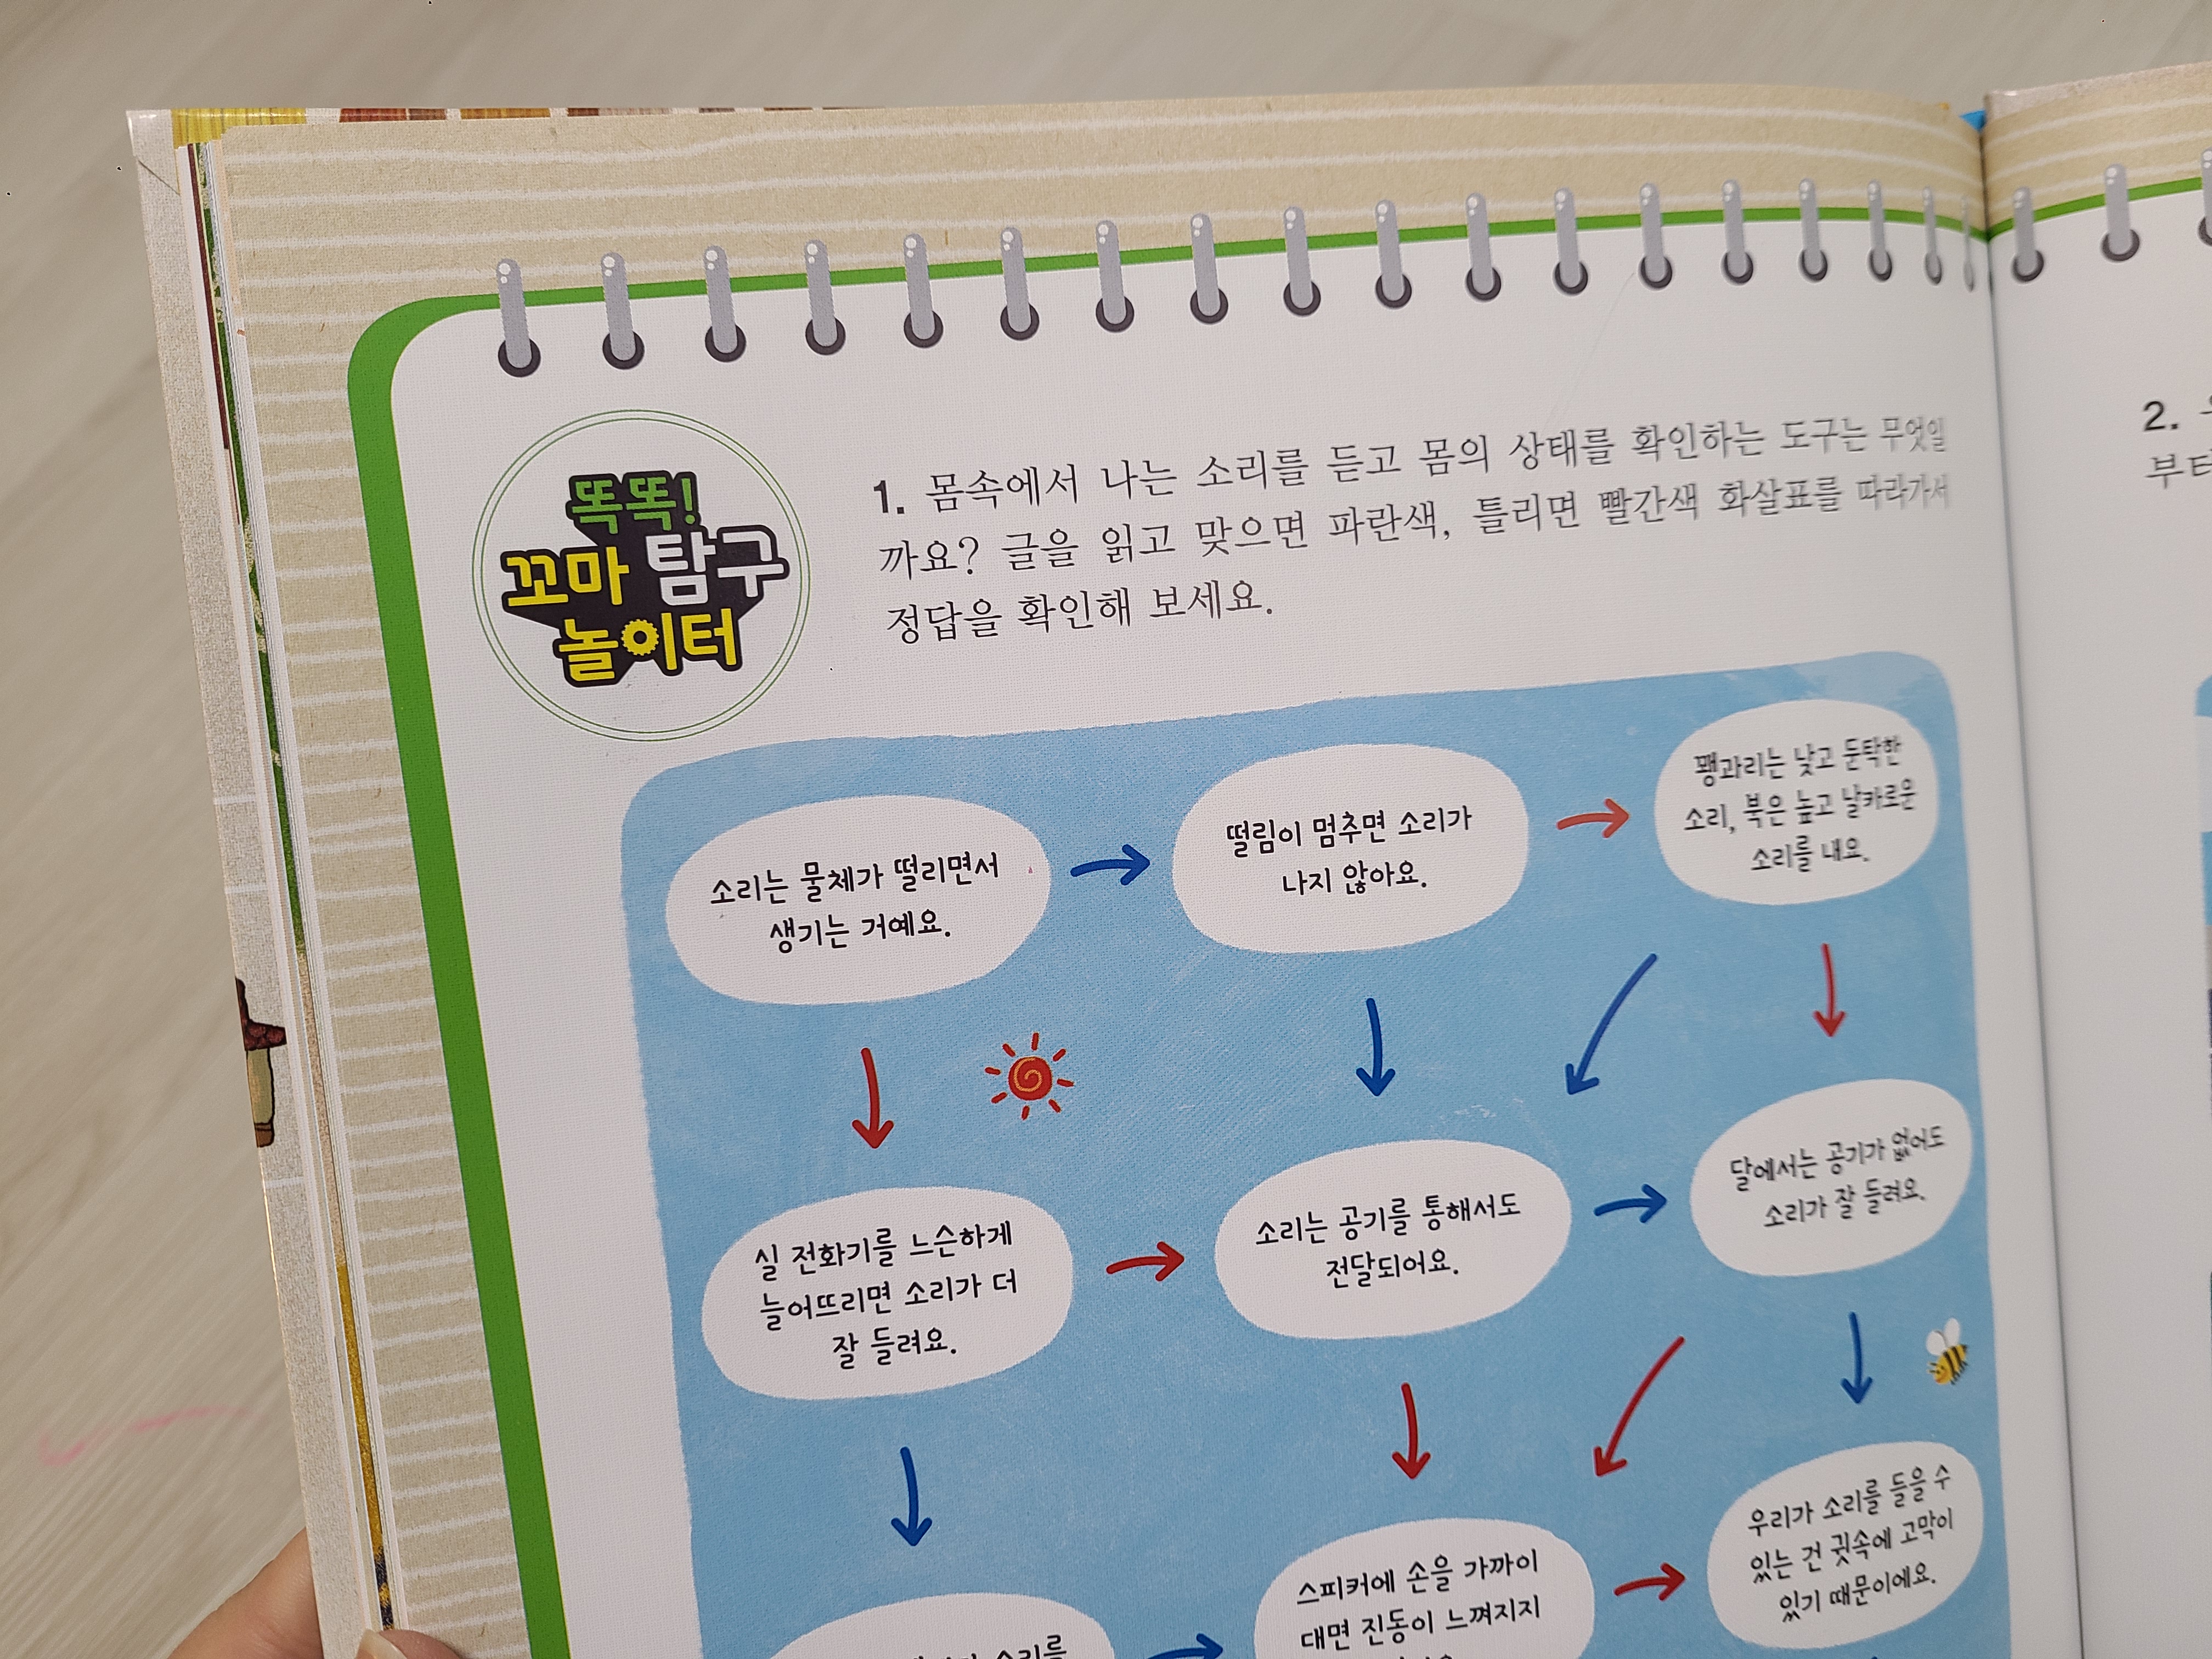 똑똑!
꼬마 탐구
놀이터
1. 몸속에서 나는 소리를 듣고 몸의 상태를 확인하는 도구는 무엇일
까요? 글을 읽고 맞으면 파란색, 틀리면 빨간색 화살표를 따라가서
정답을 확인해 보세요.
소리는 물체가 떨리면서
생기는 거예요.
떨림이 멈추면 소리가
나지 않아요.
꽹과리는 낮고 둔탁한
소리, 북은 높고 날카로운
소리를 내요.
실 전화기를 느슨하게
늘어뜨리면 소리가 더
잘 들려요.
소리는 공기를 통해서도
전달되어요.
달에서는 공기가 없어도
소리가 잘 들려요.
소리를
스피커에 손을 가까이
대면 진동이 느껴지지
우리가 소리를 들을 수
있는 건 귓속에 고막이
있기 때문이에요.
2.
부터